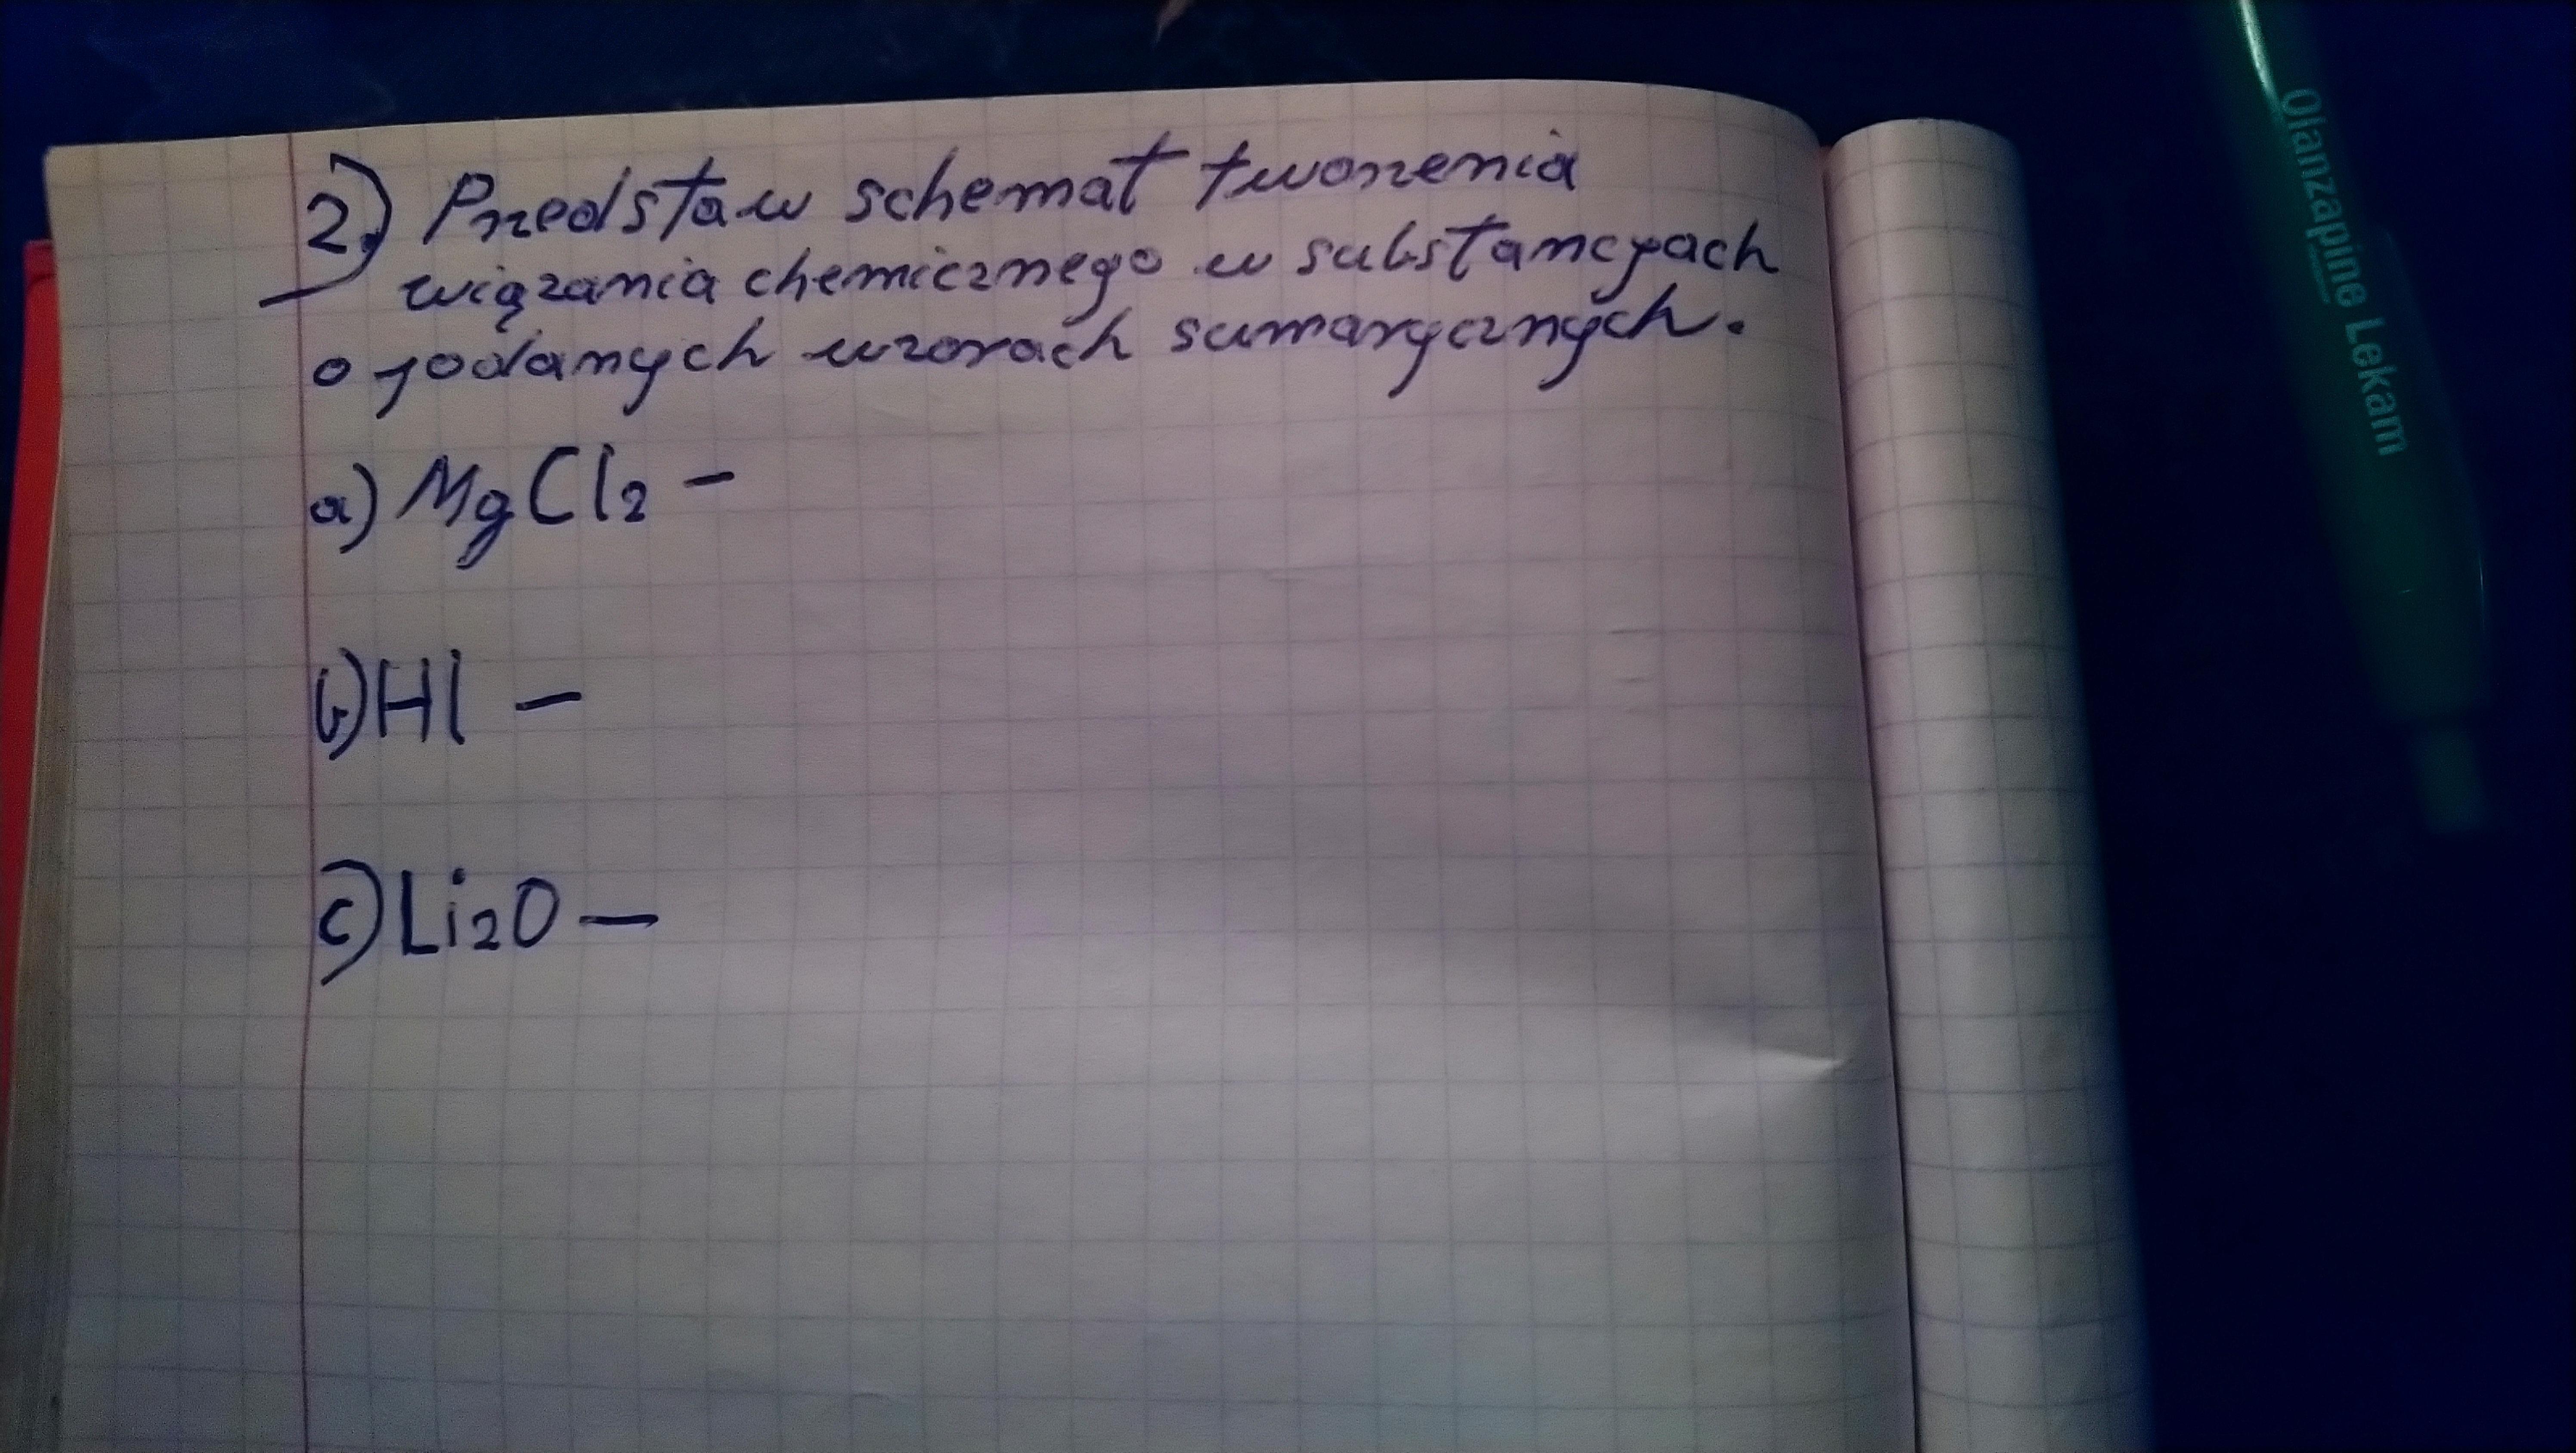 2.) Przedstaw schemat tworzenia
wiązania chemicznego w substancjach
o podanych wzorach sumarycznych.
a) MgCl2 -
b) HI -
c) Li2O -
Olanzapine Lekam